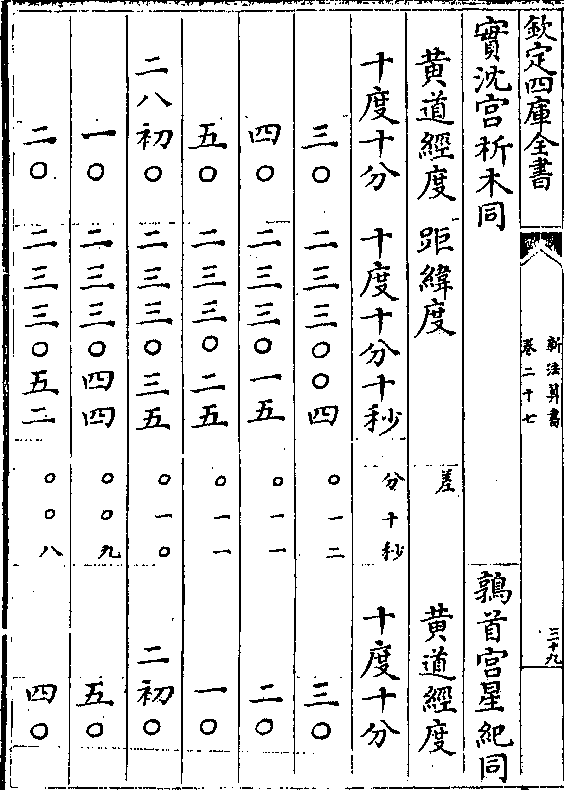 欽定四庫全書
新法算書
卷二十七
三十九
實沈宫析木同
鶉首宫星紀同
黄道經度
距緯度
差
黄道經度
十度十分
十度十分十秒
分十秒
十度十分
三〇
二三三〇〇四
〇一二
三〇
四〇
二三三〇一五
〇一一
二〇
五〇
二三三〇二五
〇一一
一〇
二八初〇
二三三〇三五
〇一〇
二初〇
一〇
二三三〇四四
〇〇九
五〇
二〇
二三三〇五二
〇〇八
四〇